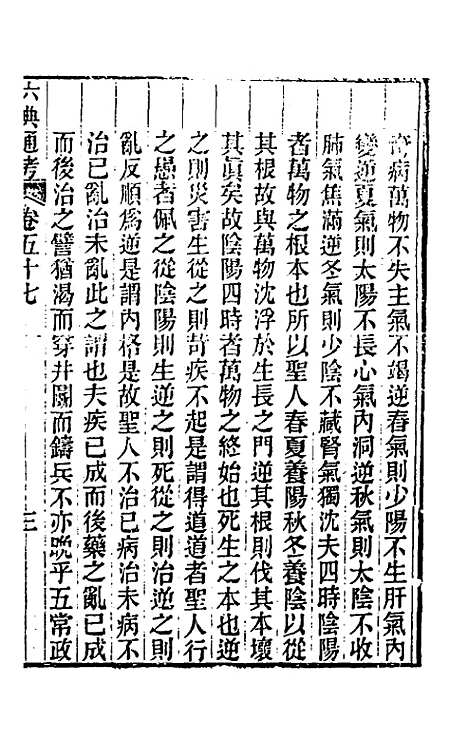 奇病萬物不失主氣不竭逆春氣則少陽不生肝氣內
變逆夏氣則太陽不長心氣內洞逆秋氣則太陰不收
肺氣焦滿逆冬氣則少陰不藏腎氣獨沈夫四時陰陽
者萬物之根本也所以聖人春夏養陽秋冬養陰以從
其根故與萬物沈浮於生長之門逆其根則伐其本壞
其眞矣故陰陽四時者萬物之終始也死生之本也逆
之則災害生從之則苛疾不起是謂得道道者聖人行
之愚者佩之從陰陽則生逆之則死從之則治逆之則
亂反順爲逆是謂內格是故聖人不治已病治未病不
治已亂治未亂此之謂也夫疾已成而後藥之亂已成
而後治之譬猶渴而穿井鬭而鑄兵不亦晚乎五常政
六典通考 卷五十七 三